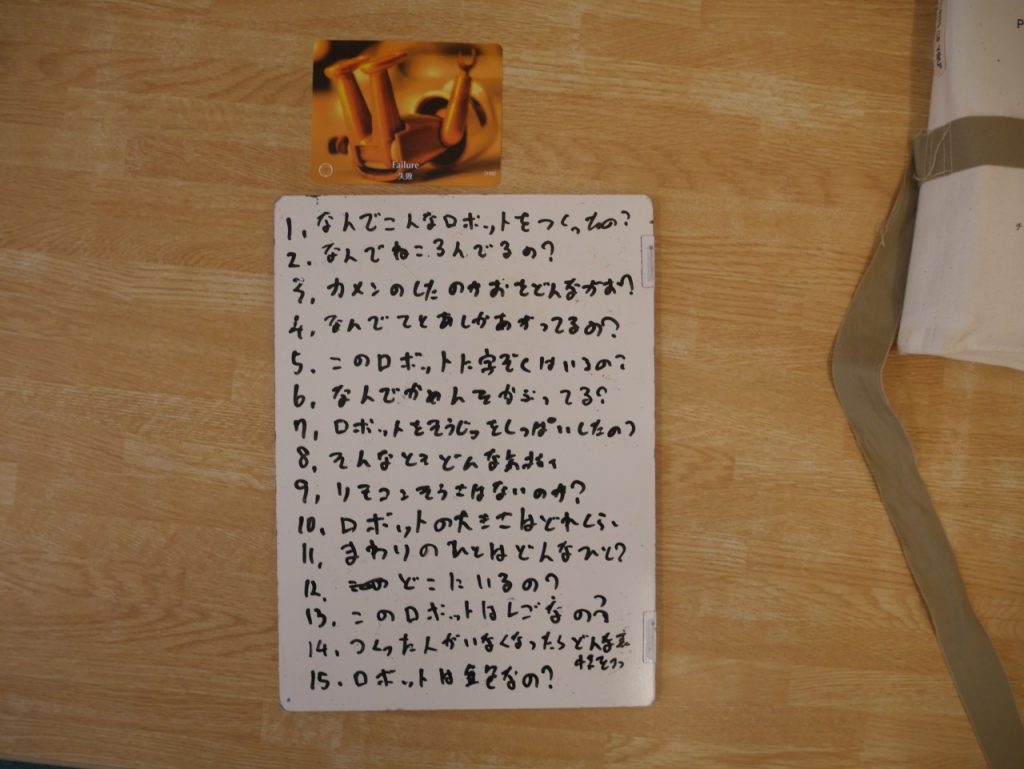 Failure
失敗
1. なんでこんなロボットをつくったの?
2. なんでねころんでるの?
3. カメンのしたのかおはどんなかお?
4. なんでてとあしがあがってるの?
5. このロボットに字ぞくはいるの?
6. なんでかめんをかぶってる?
7, ロボットをそうじゅをしっぱいしたの?
8. そんなときどんな気持ち
9, リモコンそうさはないのか?
10. ロボットの大きさはどれくらい
11, まわりのひとはどんなひと?
12. どこにいるの?
13. このロボットはしごなの?
14. つくった人がいなくなったらどんな
15. ロボットは金色なの?